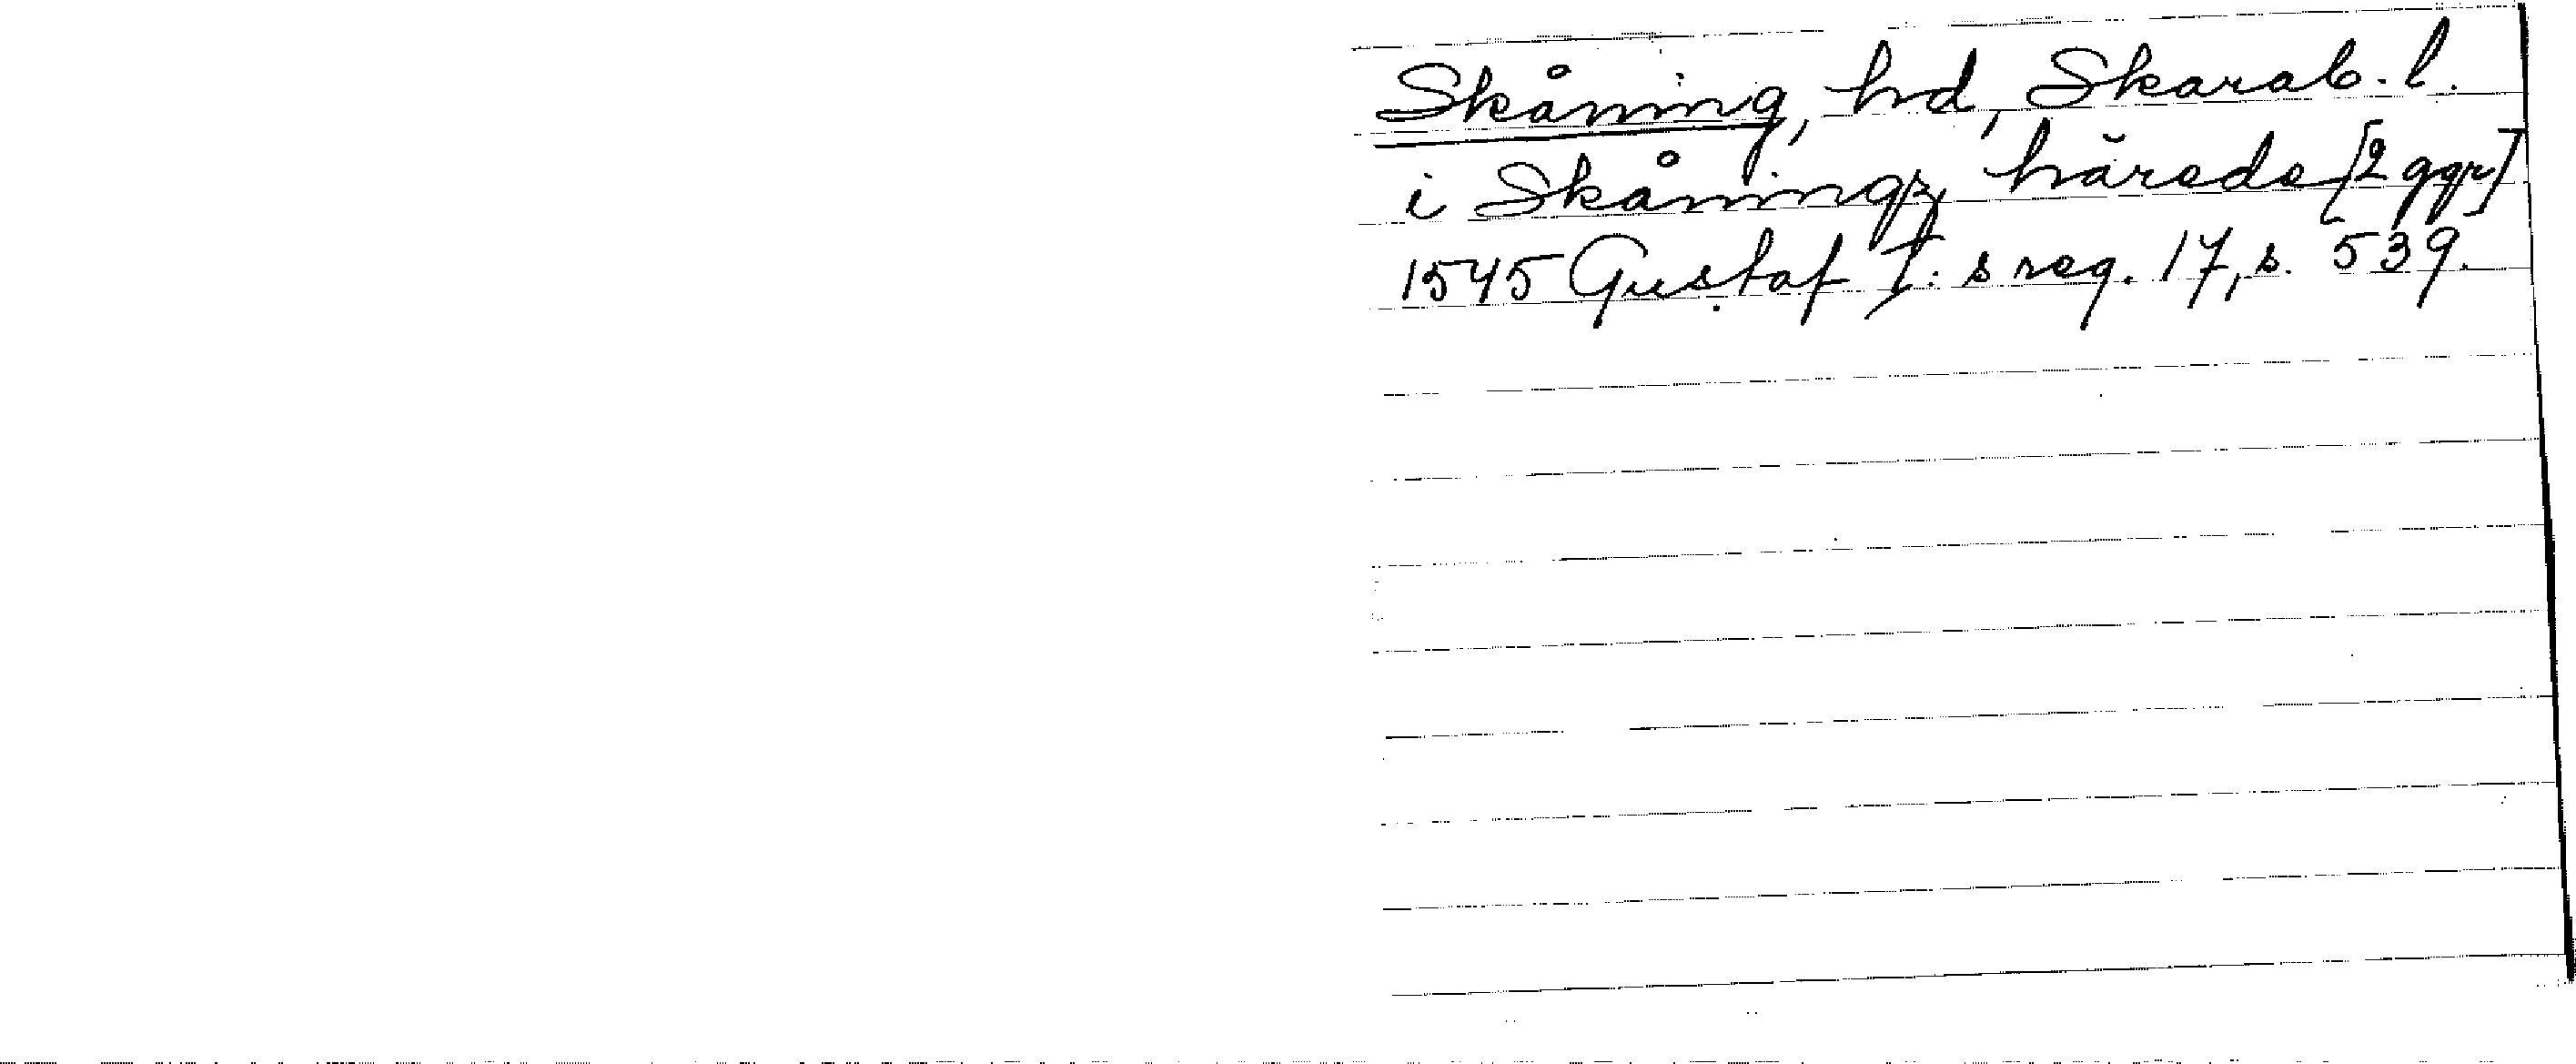 Skåning, hd, Skarab. l.
i Skåningz härede [2 ggr]
1545 Gustaf I:s reg. 17, s. 539.